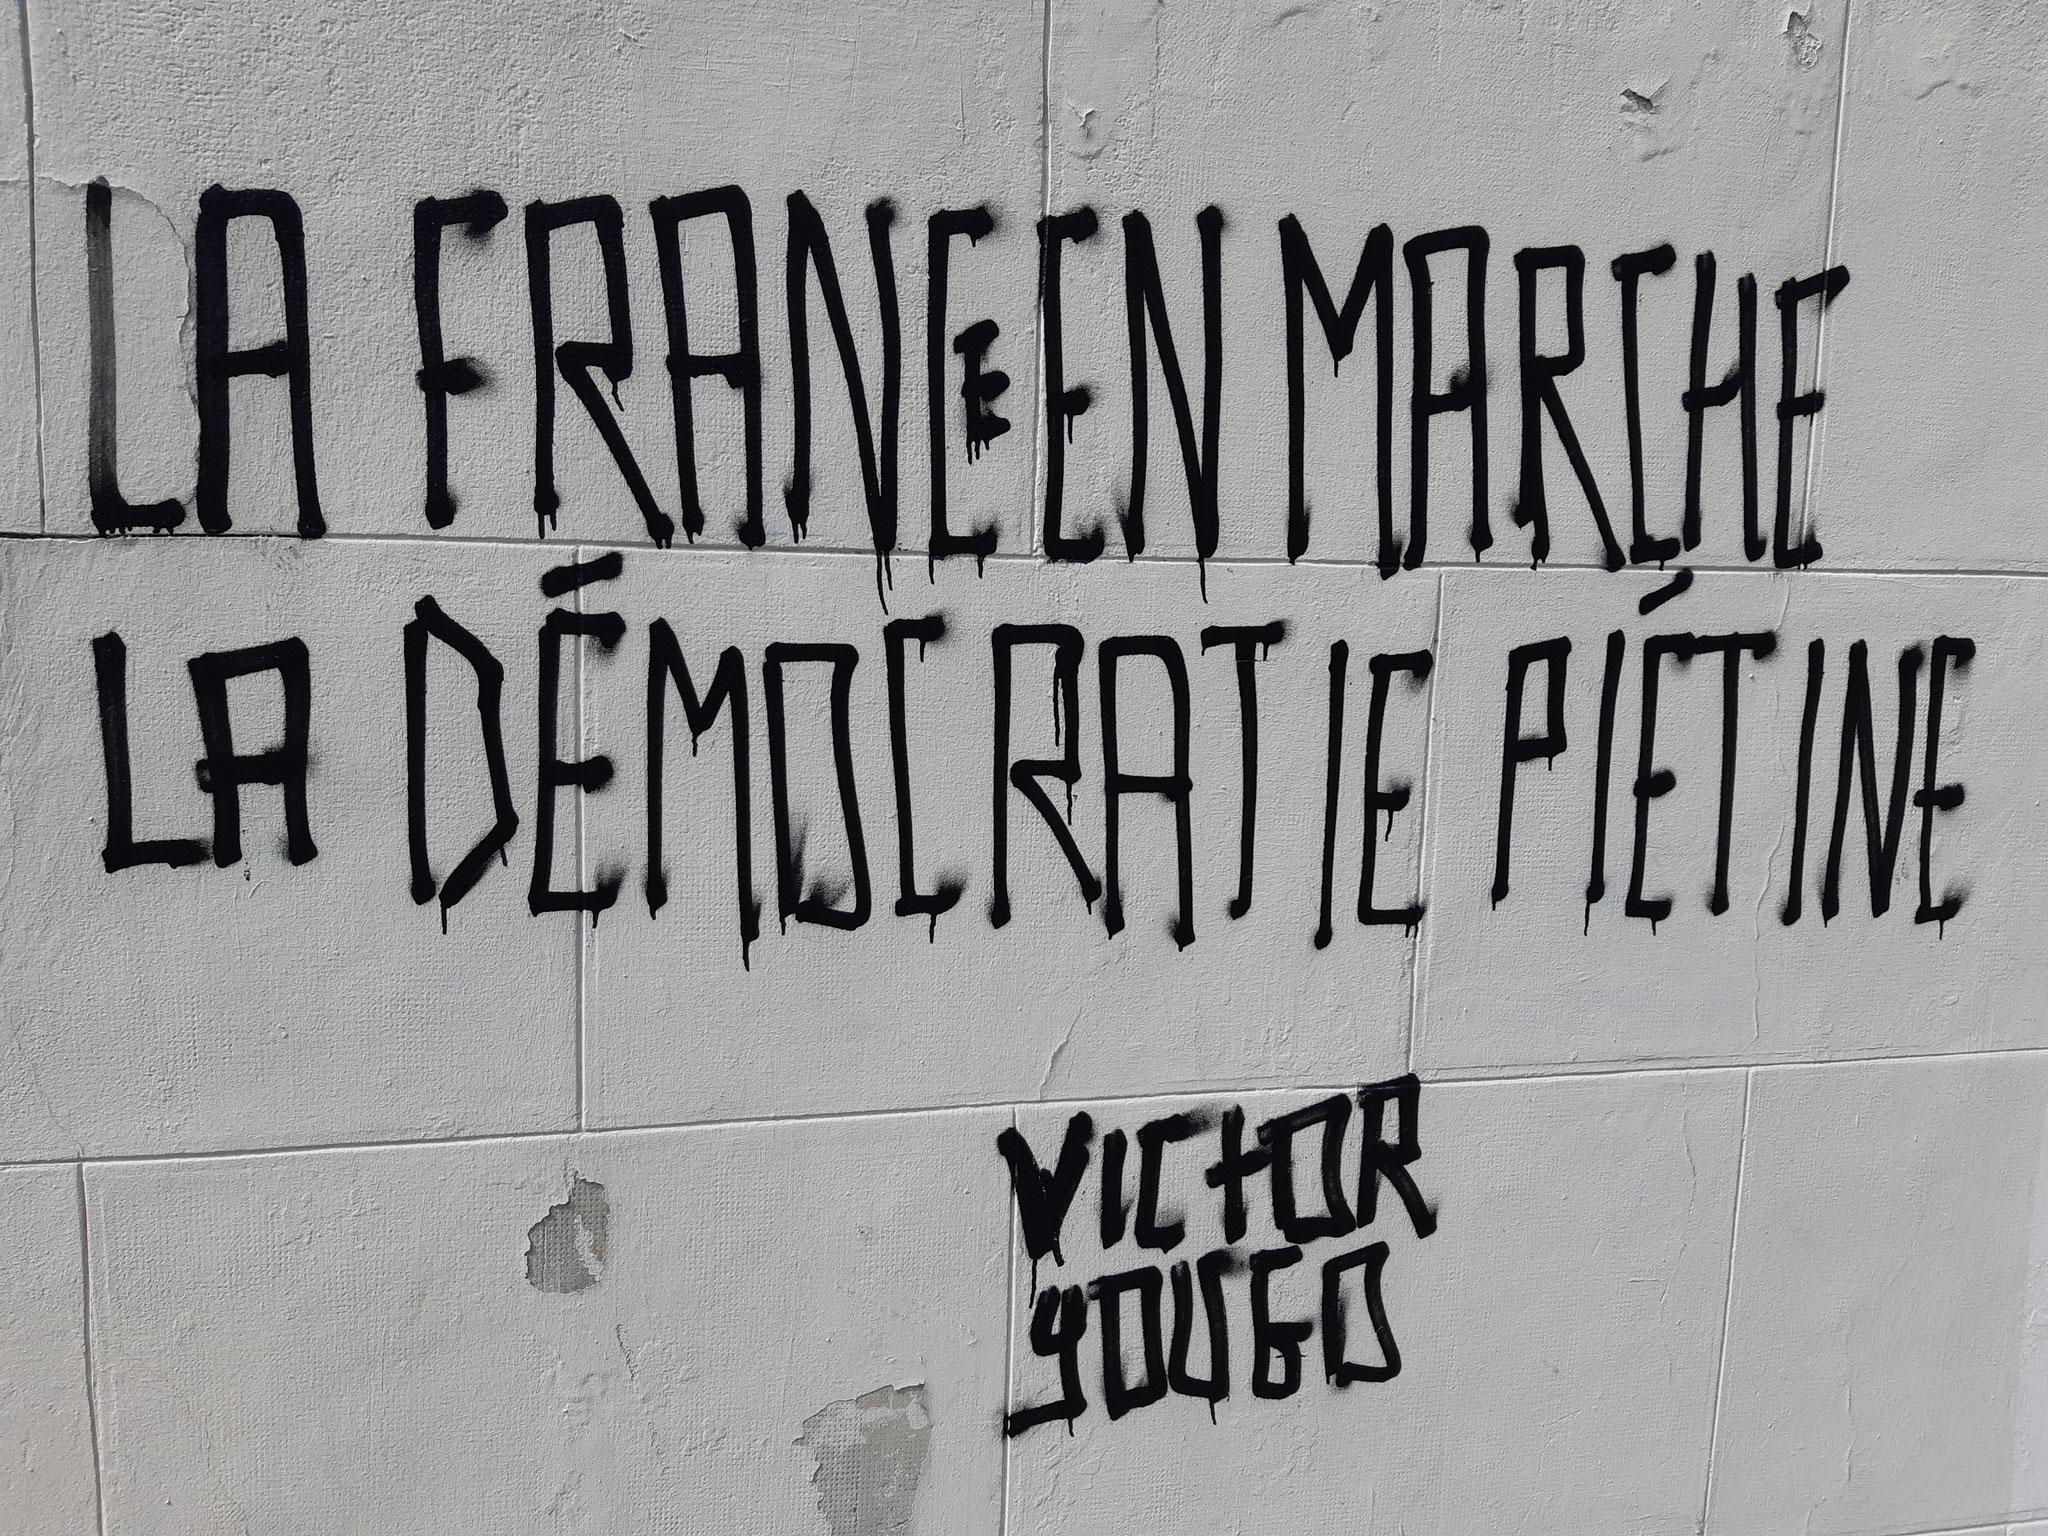 LA FRANCE EN MARCHE
LA DÉMOCRATIE PIÉTINE
VICTOR
YOUGO